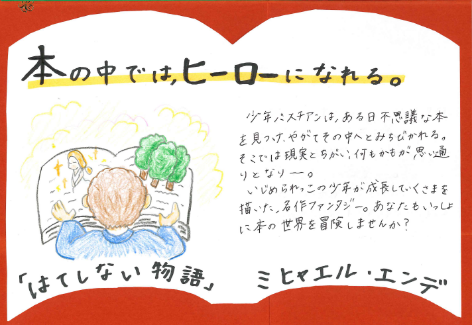 本の中では、ヒーローになれる。
少年バスチアンは、ある日不思議な本
を見つけ、やがてその中へとみちびかれる。
そこでは現実とちがい、何もかもが思い通
りとなり一。
いじめられっこの少年が成長していくさまを
描いた、名作ファンタジー。あなたもいっしょ
に本の世界を冒険しませんか?
「はてしない物語」
ミヒャエル・エンデ